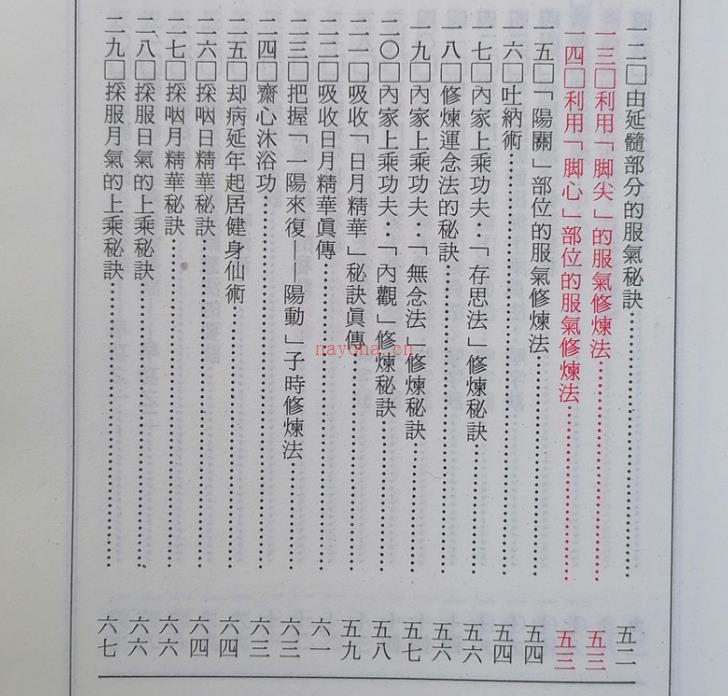 一二□由延髓部分的服氣秘訣……五二
一三□利用「脚尖」的服氣修煉法……五三
一四□利用「脚心」部位的服氣修煉法……五三
一五□「陽關」部位的服氣修煉法……五四
一六□吐納術……五四
一七□內家上乘功夫：「存思法」修煉秘訣……五六
一八□修煉運念法的秘訣……五六
一九□內家上乘功夫：「無念法」修煉秘訣……五七
二〇□內家上乘功夫：「內觀」修煉秘訣……五八
二一□吸收「日月精華」秘訣眞傳……五九
二二□吸收日月精華眞傳……六一
二三□把握「一陽來復——陽動」子時修煉法……六三
二四□齋心沐浴功……六三
二五□却病延年起居健身仙術……六四
二六□採咽日精華秘訣……六四
二七□採咽月精華秘訣……六六
二八□採服日氣的上乘秘訣……六六
二九□採服月氣的上乘秘訣……六七
nayona.cn